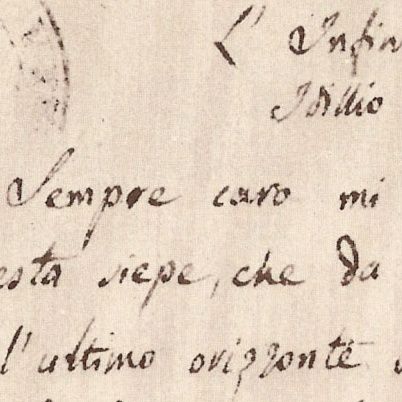 L' Infin
Idillio
Sempre caro mi
esta siepe, che da
l'ultimo orizzonte